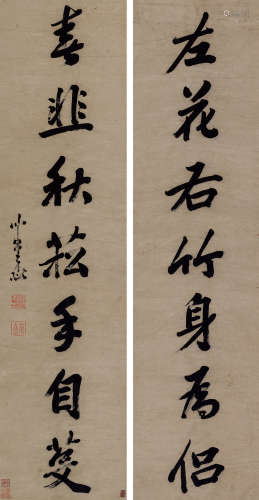 左花右竹身為侶
春韭秋菘手自芟